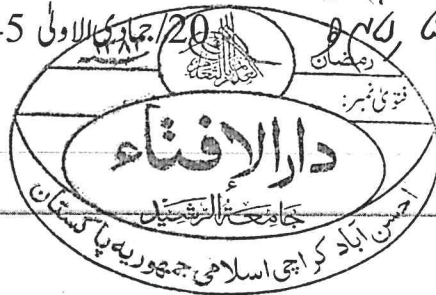 20/جمادی الاولی 5
رمضان
۱۳۸۳
فتوی نمبر:
دارالافتاء
جَامِعَةُ الرَّشِيد
احسن آباد کراچی اسلامی جمہوریہ پاکستان